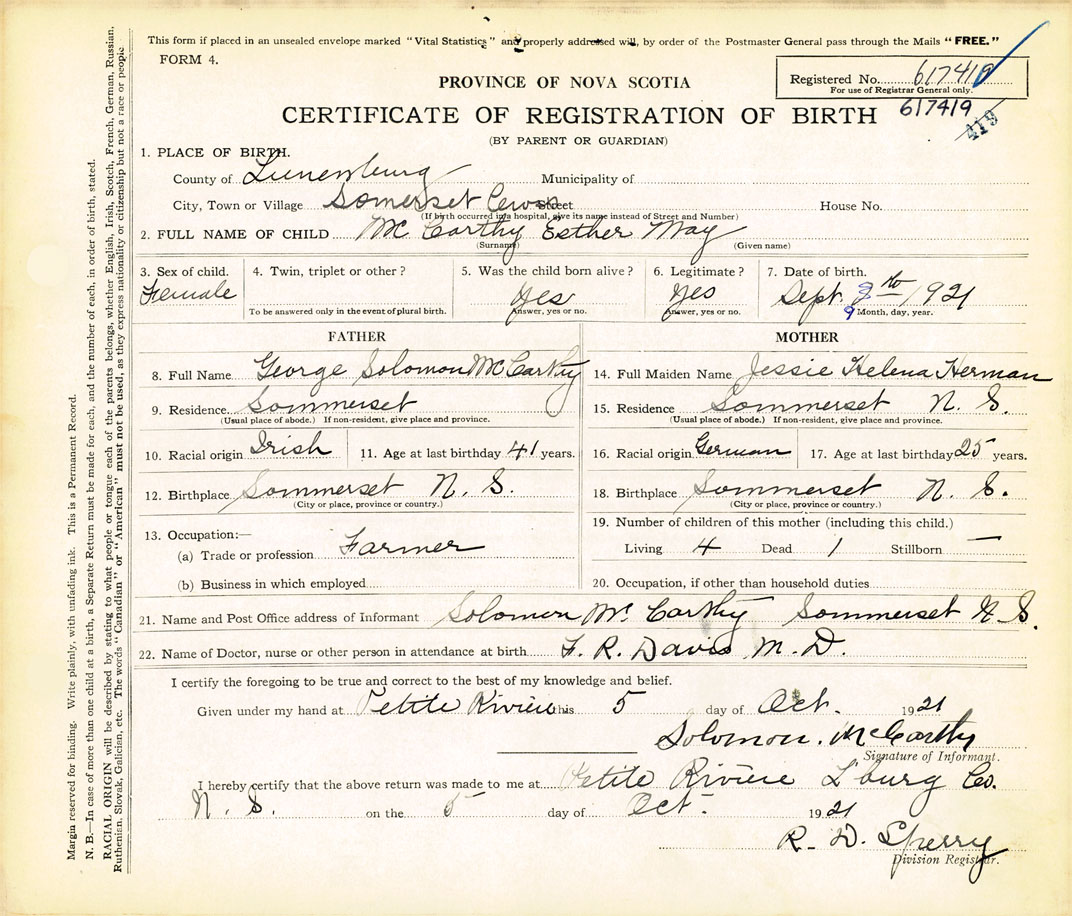 This form if placed in an unsealed envelope marked "Vital Statistics" and properly addressed will, by order of the Postmaster General pass through the Mails "FREE."
FORM 4.
Registered No. 617419
For use of Registrar General only.
617419
419
PROVINCE OF NOVA SCOTIA
CERTIFICATE OF REGISTRATION OF BIRTH
(BY PARENT OR GUARDIAN)
1. PLACE OF BIRTH.
County of Lunenburg Municipality of
City, Town or Village Somerset Street House No.
(If birth occurred in a hospital, give its name instead of Street and Number)
2. FULL NAME OF CHILD McCarthy Esther May
(Surname) (Given name)
3. Sex of child. 4. Twin, triplet or other? 5. Was the child born alive? 6. Legitimate? 7. Date of birth.
Female Yes Yes Sept. th 1921
9
To be answered only in the event of plural birth. Answer, yes or no. Answer, yes or no. Month, day, year.
FATHER
8. Full Name George Solomon McCarthy
9. Residence Sommerset
(Usual place of abode.) If non-resident, give place and province.
10. Racial origin Irish 11. Age at last birthday 41 years.
12. Birthplace Sommerset N. S.
(City or place, province or country.)
13. Occupation:—
(a) Trade or profession Farmer
(b) Business in which employed
MOTHER
14. Full Maiden Name Jessie Helena Herman
15. Residence Sommerset N. S.
(Usual place of abode.) If non-resident, give place and province.
16. Racial origin German 17. Age at last birthday 25 years.
18. Birthplace Sommerset N. S.
(City or place, province or country.)
19. Number of children of this mother (including this child.)
Living 4 Dead 1 Stillborn —
20. Occupation, if other than household duties
21. Name and Post Office address of Informant Solomon McCarthy Sommerset N. S.
22. Name of Doctor, nurse or other person in attendance at birth F. R. Davis M. D.
I certify the foregoing to be true and correct to the best of my knowledge and belief.
Given under my hand at Petite Riviere this 5 day of Oct. 1921
Solomon. McCarthy
Signature of Informant.
I hereby certify that the above return was made to me at Petite Riviere L'burg Co.
N. S. on the 5 day of Oct. 1921
R. D. Sperry
Division Registrar.
Margin reserved for binding. Write plainly, with unfading ink. This is a Permanent Record.
N. B.—In case of more than one child at a birth, a Separate Return must be made for each, and the number of each, in order of birth, stated.
RACIAL ORIGIN will be described by stating to what people or tongue each of the parents belongs, whether English, Irish, Scotch, French, German, Russian,
Ruthenian, Slovak, Galician, etc. The words "Canadian" or "American" must not be used, as they express nationality or citizenship but not a race or people